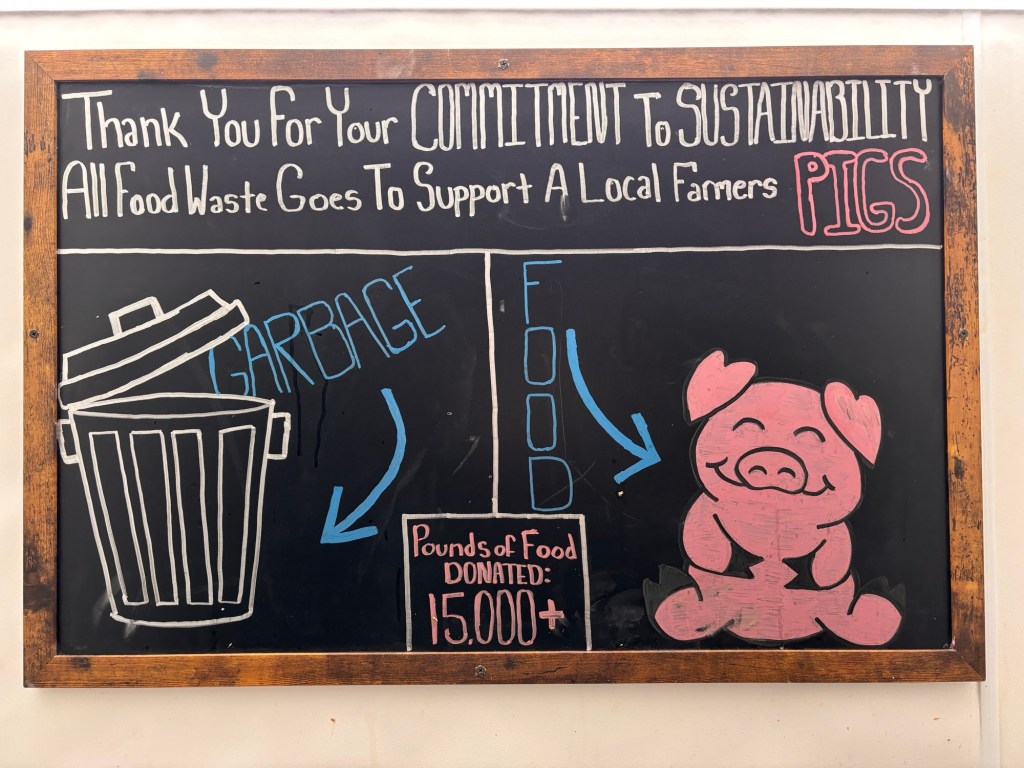 Thank You For Your COMMITMENT To SUSTAINABILITY
All Food Waste Goes To Support A Local Farmers PIGS
GARBAGE
FOOD
Pounds of Food
DONATED:
15,000+